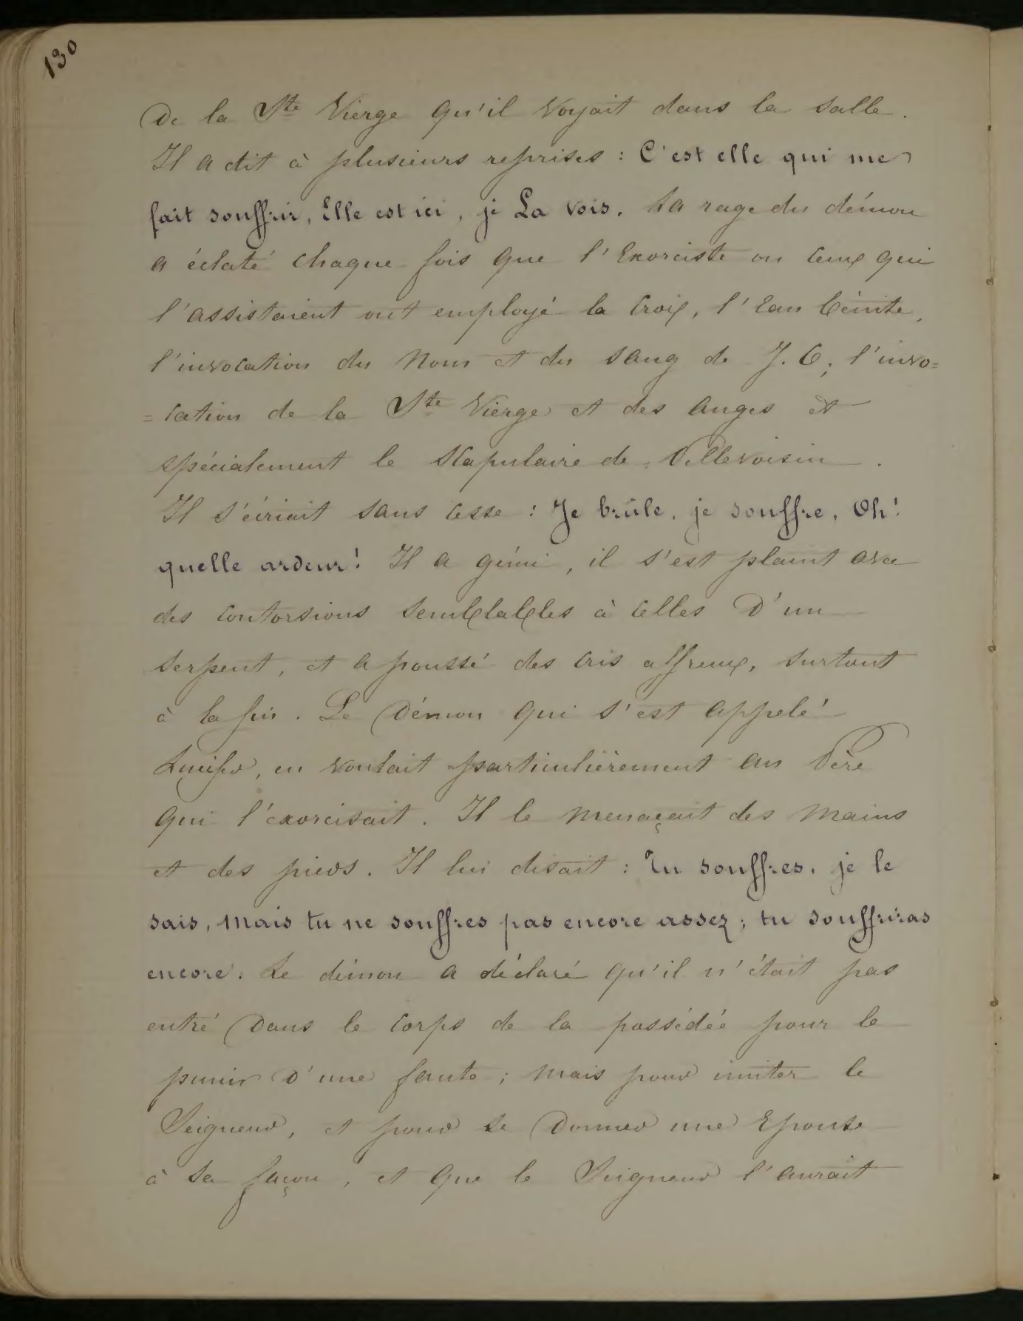 130
De la Ste Vierge qu'il voyait dans la salle.
Il a dit à plusieurs reprises : C'est elle qui me
fait souffrir, Elle est ici, je La vois. La rage du démon
a éclaté chaque fois que l'Exorciste ou ceux qui
l'assistaient ont employé la Croix, l'Eau bénite,
l'invocation du Nom et du Sang de J. C; l'invo=
=cation de la Ste Vierge et des anges et
spécialement le Scapulaire de Pellevoisin.
Il s'écriait sans cesse : Je brûle, je souffre, Oh!
quelle ardeur! Il a gémi, il s'est plaint avec
des contorsions semblables à celles d'un
serpent, et a poussé des cris affreux, surtout
à la fin. Le Démon qui s'est appelé
Lucifer, en voulait particulièrement au Père
qui l'exorcisait. Il le menaçait des mains
et des pieds. Il lui disait : Tu souffres, je le
sais, mais tu ne souffres pas encore assez; tu souffriras
encore. Le démon a déclaré qu'il n'était pas
entré dans le corps de la possédée pour le
punir d'une faute; mais pour imiter le
Seigneur, et pour se Donner une Epouse
à sa façon, et que le Seigneur l'aurait